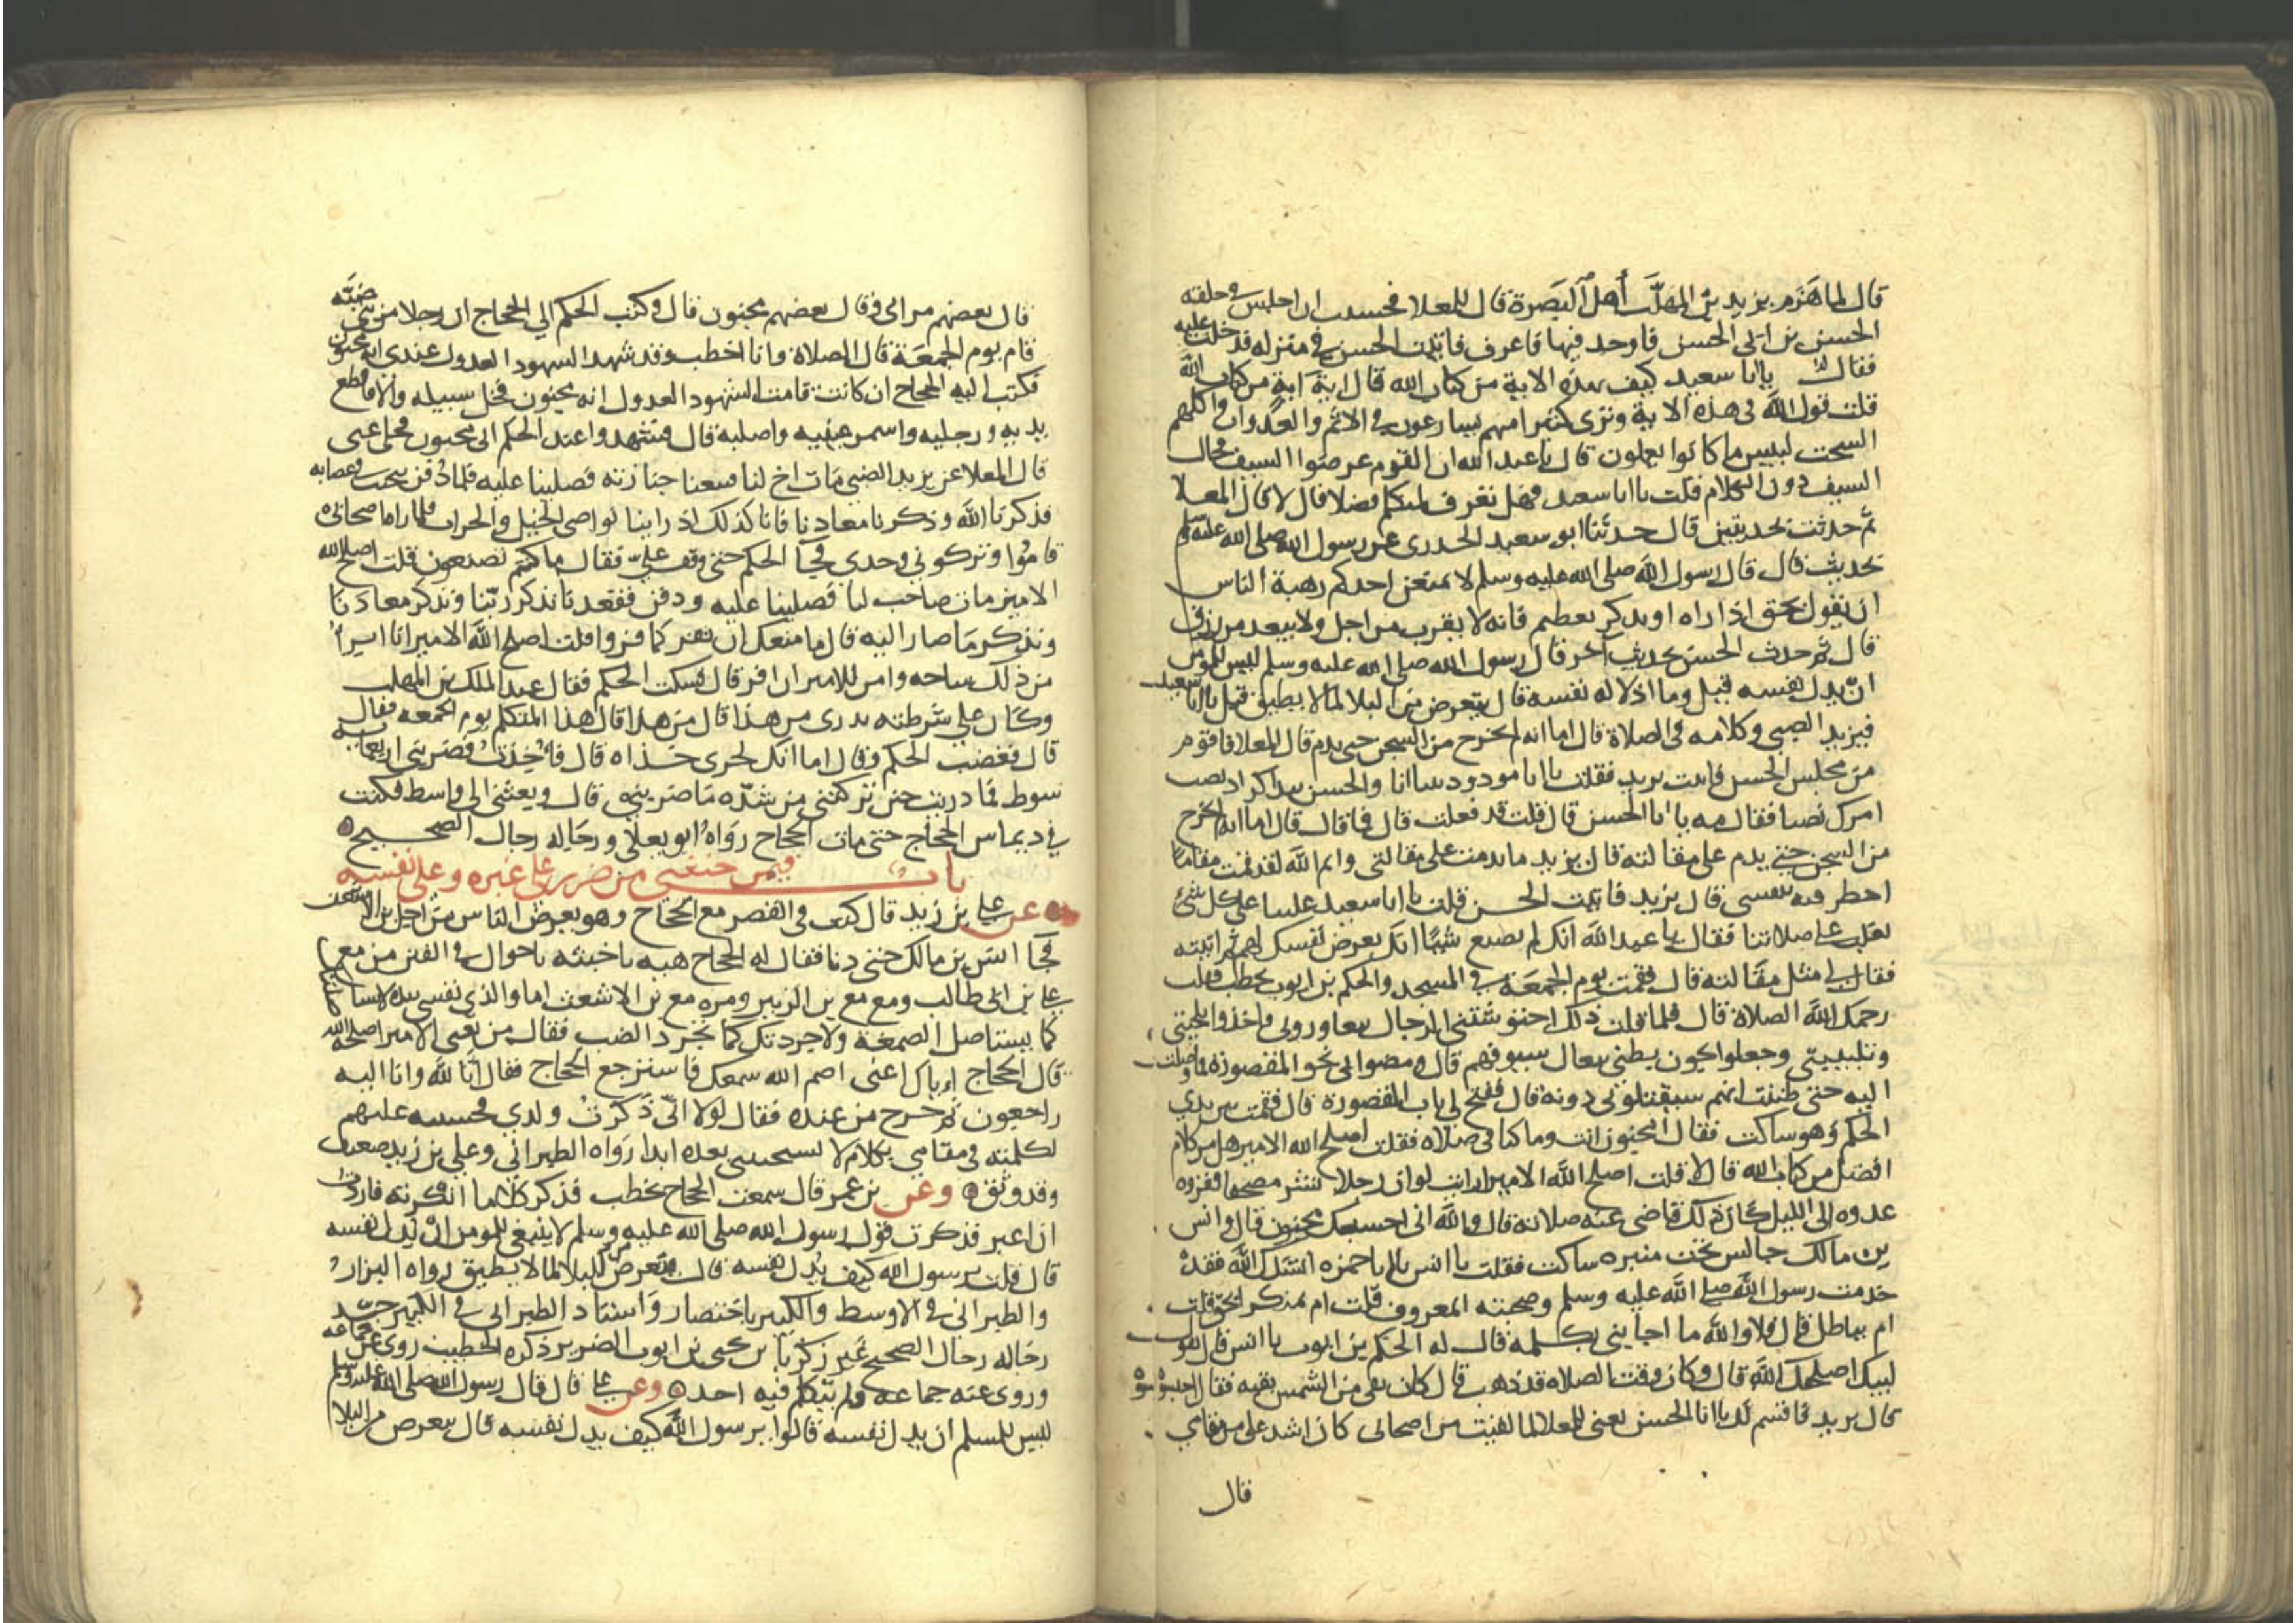 قال لما هزم يزيد بن المهلب أهل البصرة قال المعلا فخشيت ان اجلس في حلقه
الحسن بن ابى الحسن فاوجد فيها فاعرف فاتيت الحسن في منزله فدخلت عليه
فقلت يا ابا سعيد كيف بهذه الاية من كتاب الله قال اية اية من كتاب الله
قلت قول الله في هذه الاية وترى كثيرا منهم يسارعون في الاثم والعدوان واكلهم
السحت لبيس ما كانوا يعملون قال يا عبد الله ان القوم عرضوا السيف فحال
السيف دون الكلام قلت يا ابا سعيد فهل تعرف لمتكلم فضلا قال لا قال المعلا
ثم حدثت بحديثين قال حدثنا ابو سعيد الخدرى عن رسول الله صلى الله عليه وسلم
بحديث قال قال رسول الله صلى الله عليه وسلم لا يمنعن احدكم رهبة الناس
ان يقول بحق اذا راه او يذكر بعظيم فانه لا يقرب من اجل ولا يبعد من رزق
قال ثم حدث الحسن بحديث آخر قال رسول الله صلى الله عليه وسلم ليس للمومن
ان يذل نفسه قيل وما اذلاله نفسه قال يتعرض من البلا لما لا يطيق قيل يا ابا سعيد
فيزيد الضبي وكلامه في الصلاة قال اما انه لم يخرج من السجن حتى يدم قال المعلا فاقوم
من مجلس الحسن فاتيت يزيد فقلت يا ابا مودود بينا انا والحسن نتذاكر اذ نصب
امرك نصبا فقال مه يا ابا الحسن قال قلت قد فعلت قال فما قال قال اما انه لم يخرج
من السجن حتى يدم على مقالته قال يزيد ما ندمت على مقالتى وايم الله لقد قمت مقاما
اخطر فيه بنفسى قال يزيد فاتيت الحسن قلت يا ابا سعيد غلبنا على كل شئ
نغلب على صلاتنا فقال يا عبد الله انك لم تصنع شيئا انك تعرض نفسك لهم ثم اتيته
فقال لي مثل مقالته قال فقمت يوم الجمعة في المسجد والحكم بن ايوب يخطب فقلت
رحمك الله الصلاة قال فلما قلت ذلك احتوشتنى الرجال يتعاورونى فاخذوا بلحيتى
وتلبيبتى وجعلوا يجون بطنى بنعال سيوفهم قال ومضوا بى نحو المقصورة فما وصلت
اليه حتى ظننت انهم سيقتلونى دونه قال ففتح لي باب المقصورة قال فقمت بين يدي
الحكم وهو ساكت فقال امجنون انت وما كنا في صلاه فقلت اصلح الله الامير هل من كلام
افضل من كتاب الله قال لا قلت اصلح الله الامير ارايت لو ان رجلا نشر مصحفا فقراه
غدوه الى الليل كان ذلك قاضى عنه صلاته قال والله انى احسبك مجنون قال وانس
بن مالك جالس تحت منبره ساكت فقلت يا انس يا ابا حمزه انشدك الله فقد
خدمت رسول الله صلى الله عليه وسلم وصحبته امعروف قلت ام بمنكر ابحق قلت
ام بباطل قال فلا والله ما اجابنى بكلمه قال له الحكم بن ايوب يا انس قال يقول
لبيك اصلحك الله قال وكان وقت الصلاه قد ذهب قال كان بقى من الشمس بقيه فقال احبسوه
قال يزيد فاقسم لك يا ابا الحسن يعنى للمعلا لما لقيت من اصحابى كان اشد على من مقامي
قال
قال بعضهم مرائى وقال بعضهم مجنون قال وكتب الحكم الي الحجاج ان رجلا من بنى ضبه
قام يوم الجمعة قال الصلاة وانا اخطب وقد شهد الشهود العدول عندى انه مجنون
فكتب اليه الحجاج ان كانت قامت الشهود العدول انه مجنون فخل سبيله والا فاقطع
يديه ورجليه واسمر عينيه واصلبه قال فشهدوا عند الحكم انى مجنون فخلى عنى
قال المعلا عن يزيد الضبي مات اخ لنا فتبعنا جنازته فصلينا عليه فلما دفن تنحيت في عصابه
فذكرنا الله وذكرنا معادنا فانا كذلك اذ راينا نواصى الخيل والحراب فلما راها صحابى
قاموا وتركونى وحدى فجا الحكم حتى وقف على فقال ما كنتم تصنعون قلت اصلح الله
الامير مات صاحب لنا فصلينا عليه ودفن فقعدنا نذكر ربنا ونذكر معادنا
ونذكر ما صار اليه قال ما منعك ان تفر كما فروا قلت اصلح الله الامير انا ابرا
من ذلك ساحه وامن للامير ان افر قال فسكت الحكم فقال عبد الملك بن المهلب
وكان على شرطته تدرى من هذا قال من هذا قال هذا المتكلم يوم الجمعه فقال
قال فغضب الحكم وقال اما انك لجرى خذاه قال فاخذت فضربنى اربعمايه
سوط فما دريت حين تركنى من شده ما ضربنى قال وبعثنى الى واسط فكنت
في ديماس الحجاج حتى مات الحجاج رواه ابو يعلى ورجاله رجال الصحيح
باب فيمن خشي من ضرر على غيره وعلى نفسه
عن علي بن زيد قال كنت في القصر مع الحجاج وهو يعرض الناس من اجل بن الاشعث
فجا انس بن مالك حتى دنا فقال له الحجاج هيه يا خبثه يا جوال في الفتن من مع
علي بن ابى طالب ومع مع بن الزبير ومره مع بن الاشعث اما والذى نفسى بيده لاستاصلنك
كما يستاصل الصمغة ولاجردنك كما يجرد الضب فقال من يعنى الامير اصلحه الله
قال الحجاج اياك اعنى اصم الله سمعك فاسترجع الحجاج فقال انا لله وانا اليه
راجعون ثم خرج من عنده فقال لولا انى ذكرت ولدي فخشيته عليهم
لكلمته في مقامي بكلام لا يستحيينى بعده ابدا رواه الطبرانى وعلي بن زيد ضعيف
وقد وثق وعن بن عمر قال سمعت الحجاج يخطب فذكر كلاما انكرته فاردت
ان اغير فذكرت قول رسول الله صلى الله عليه وسلم لا ينبغى للمومن ان يذل نفسه
قال قلت يرسول الله كيف يذل نفسه قال يتعرض من البلا لما لا يطيق رواه البزار
والطبرانى في الاوسط والكبير باختصار واسناد الطبرانى في الكبير جيد
رجاله رجال الصحيح غير زكريا بن يحيى بن ايوب الضرير ذكره الخطيب روى عن جماعه
وروى عنه جماعه ولم يتكلم فيه احد وعن علي قال قال رسول الله صلى الله عليه وسلم
ليس للمسلم ان يذل نفسه قالوا يرسول الله كيف يذل نفسه قال يتعرض من البلا